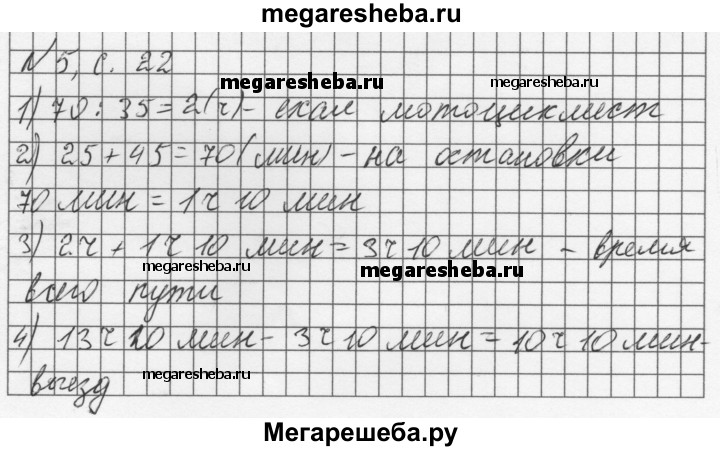 megaresheba.ru
№ 5, с. 22
megaresheba.ru
megaresheba.ru
1) 70 : 35 = 2(ч) - ехал мотоциклист
2) 25 + 45 = 70 (мин) - на остановки
70 мин = 1 ч 10 мин
3) 2 ч + 1 ч 10 мин = 3 ч 10 мин - время
megaresheba.ru
megaresheba.ru
всего пути
4) 13 ч 20 мин - 3 ч 10 мин = 10 ч 10 мин -
megaresheba.ru
выезд
Мегарешеба.ру